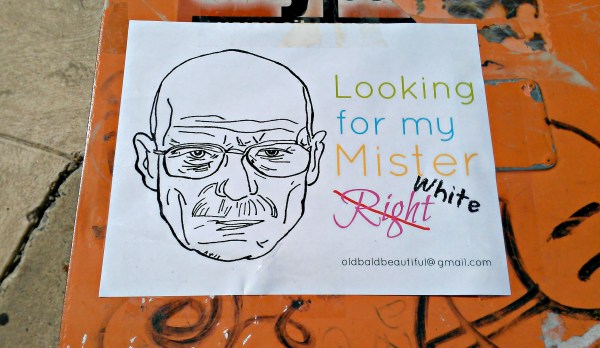 Looking
for my
Mister
Right
White
oldbaldbeautiful@gmail.com